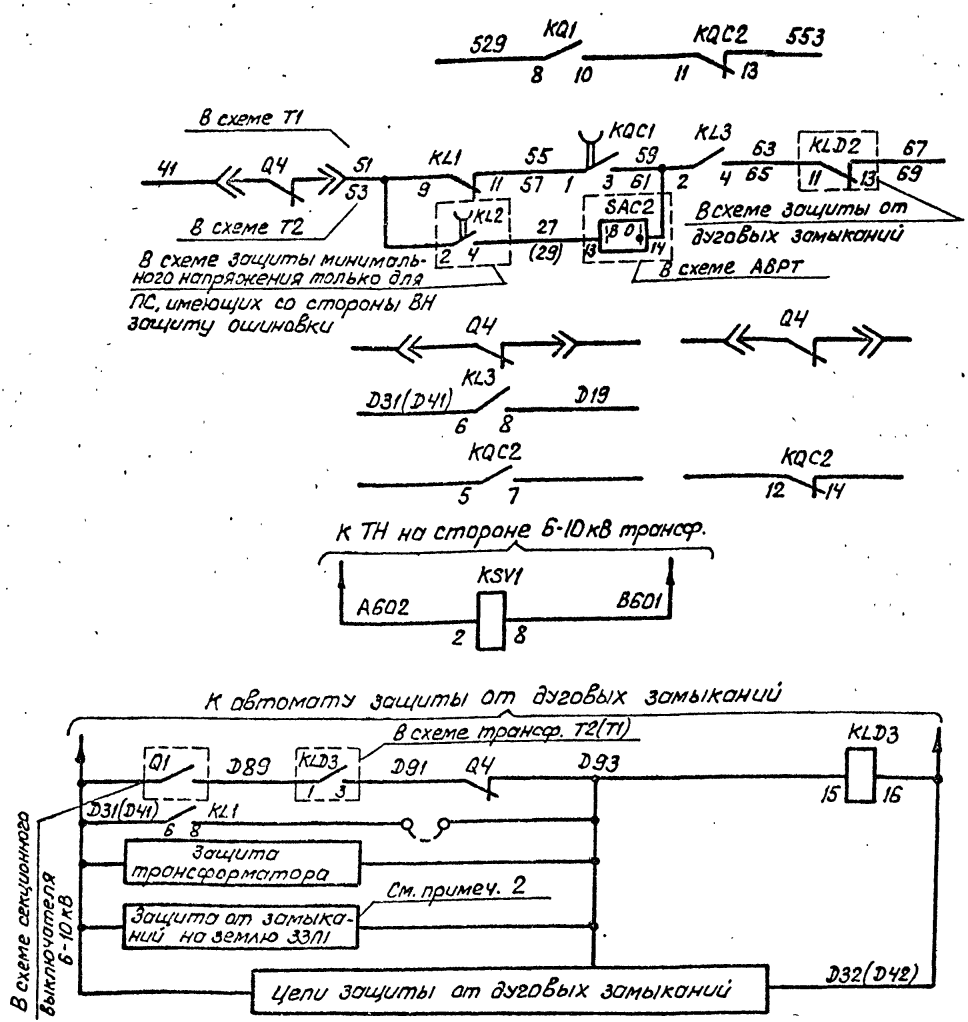 529 KQ1 KQC2 553
8 10 11 13
В схеме Т1
41 Q4 51 KL1 55 KQC1 59 KL3 63 KLD2 67
53 9 11 57 1 3 61 2 4 65 11 13 69
В схеме Т2
KL2 27 SAC2
2 4 (29) 13 В О 14
В схеме защиты от
дуговых замыканий
В схеме АВРТ
В схеме защиты минималь-
ного напряжения только для
ПС, имеющих со стороны ВН
защиту ошиновки
Q4 Q4
KL3
D31(D41) D19
6 8
KQC2 KQC2
5 7 12 14
К ТН на стороне 6-10кВ трансф.
KSV1
A602 B601
2 8
К автомату защиты от дуговых замыканий
В схеме трансф. Т2(Т1)
Q1 D89 KLD3 D91 Q4 D93 KLD3
1 3 15 16
D31(D41) KL1
6 8
Защита
трансформатора
См. примеч. 2
Защита от замыка-
ний на землю ЗЗП1
D32(D42)
Цепи защиты от дуговых замыканий
В схеме секционного
выключателя
6-10кВ